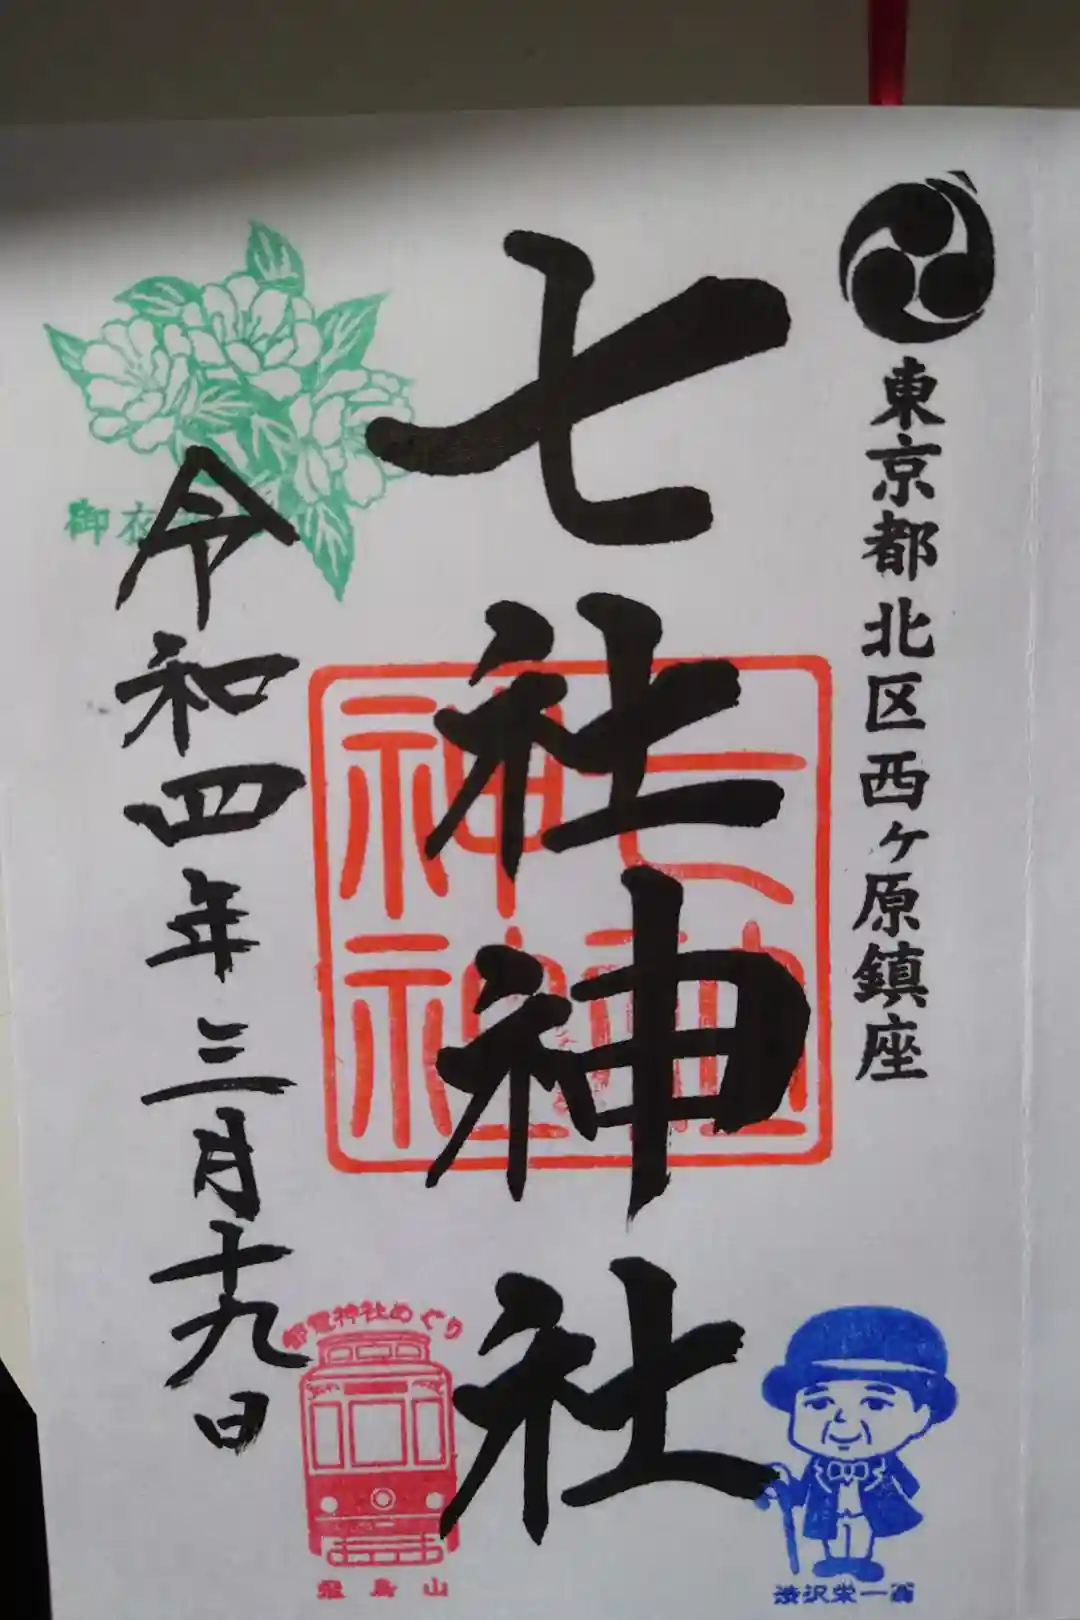 東京都北区西ヶ原鎮座
七社神社
七社神社
令和四年三月十九日
御衣
都電神社めぐり
飛鳥山
渋沢栄一翁